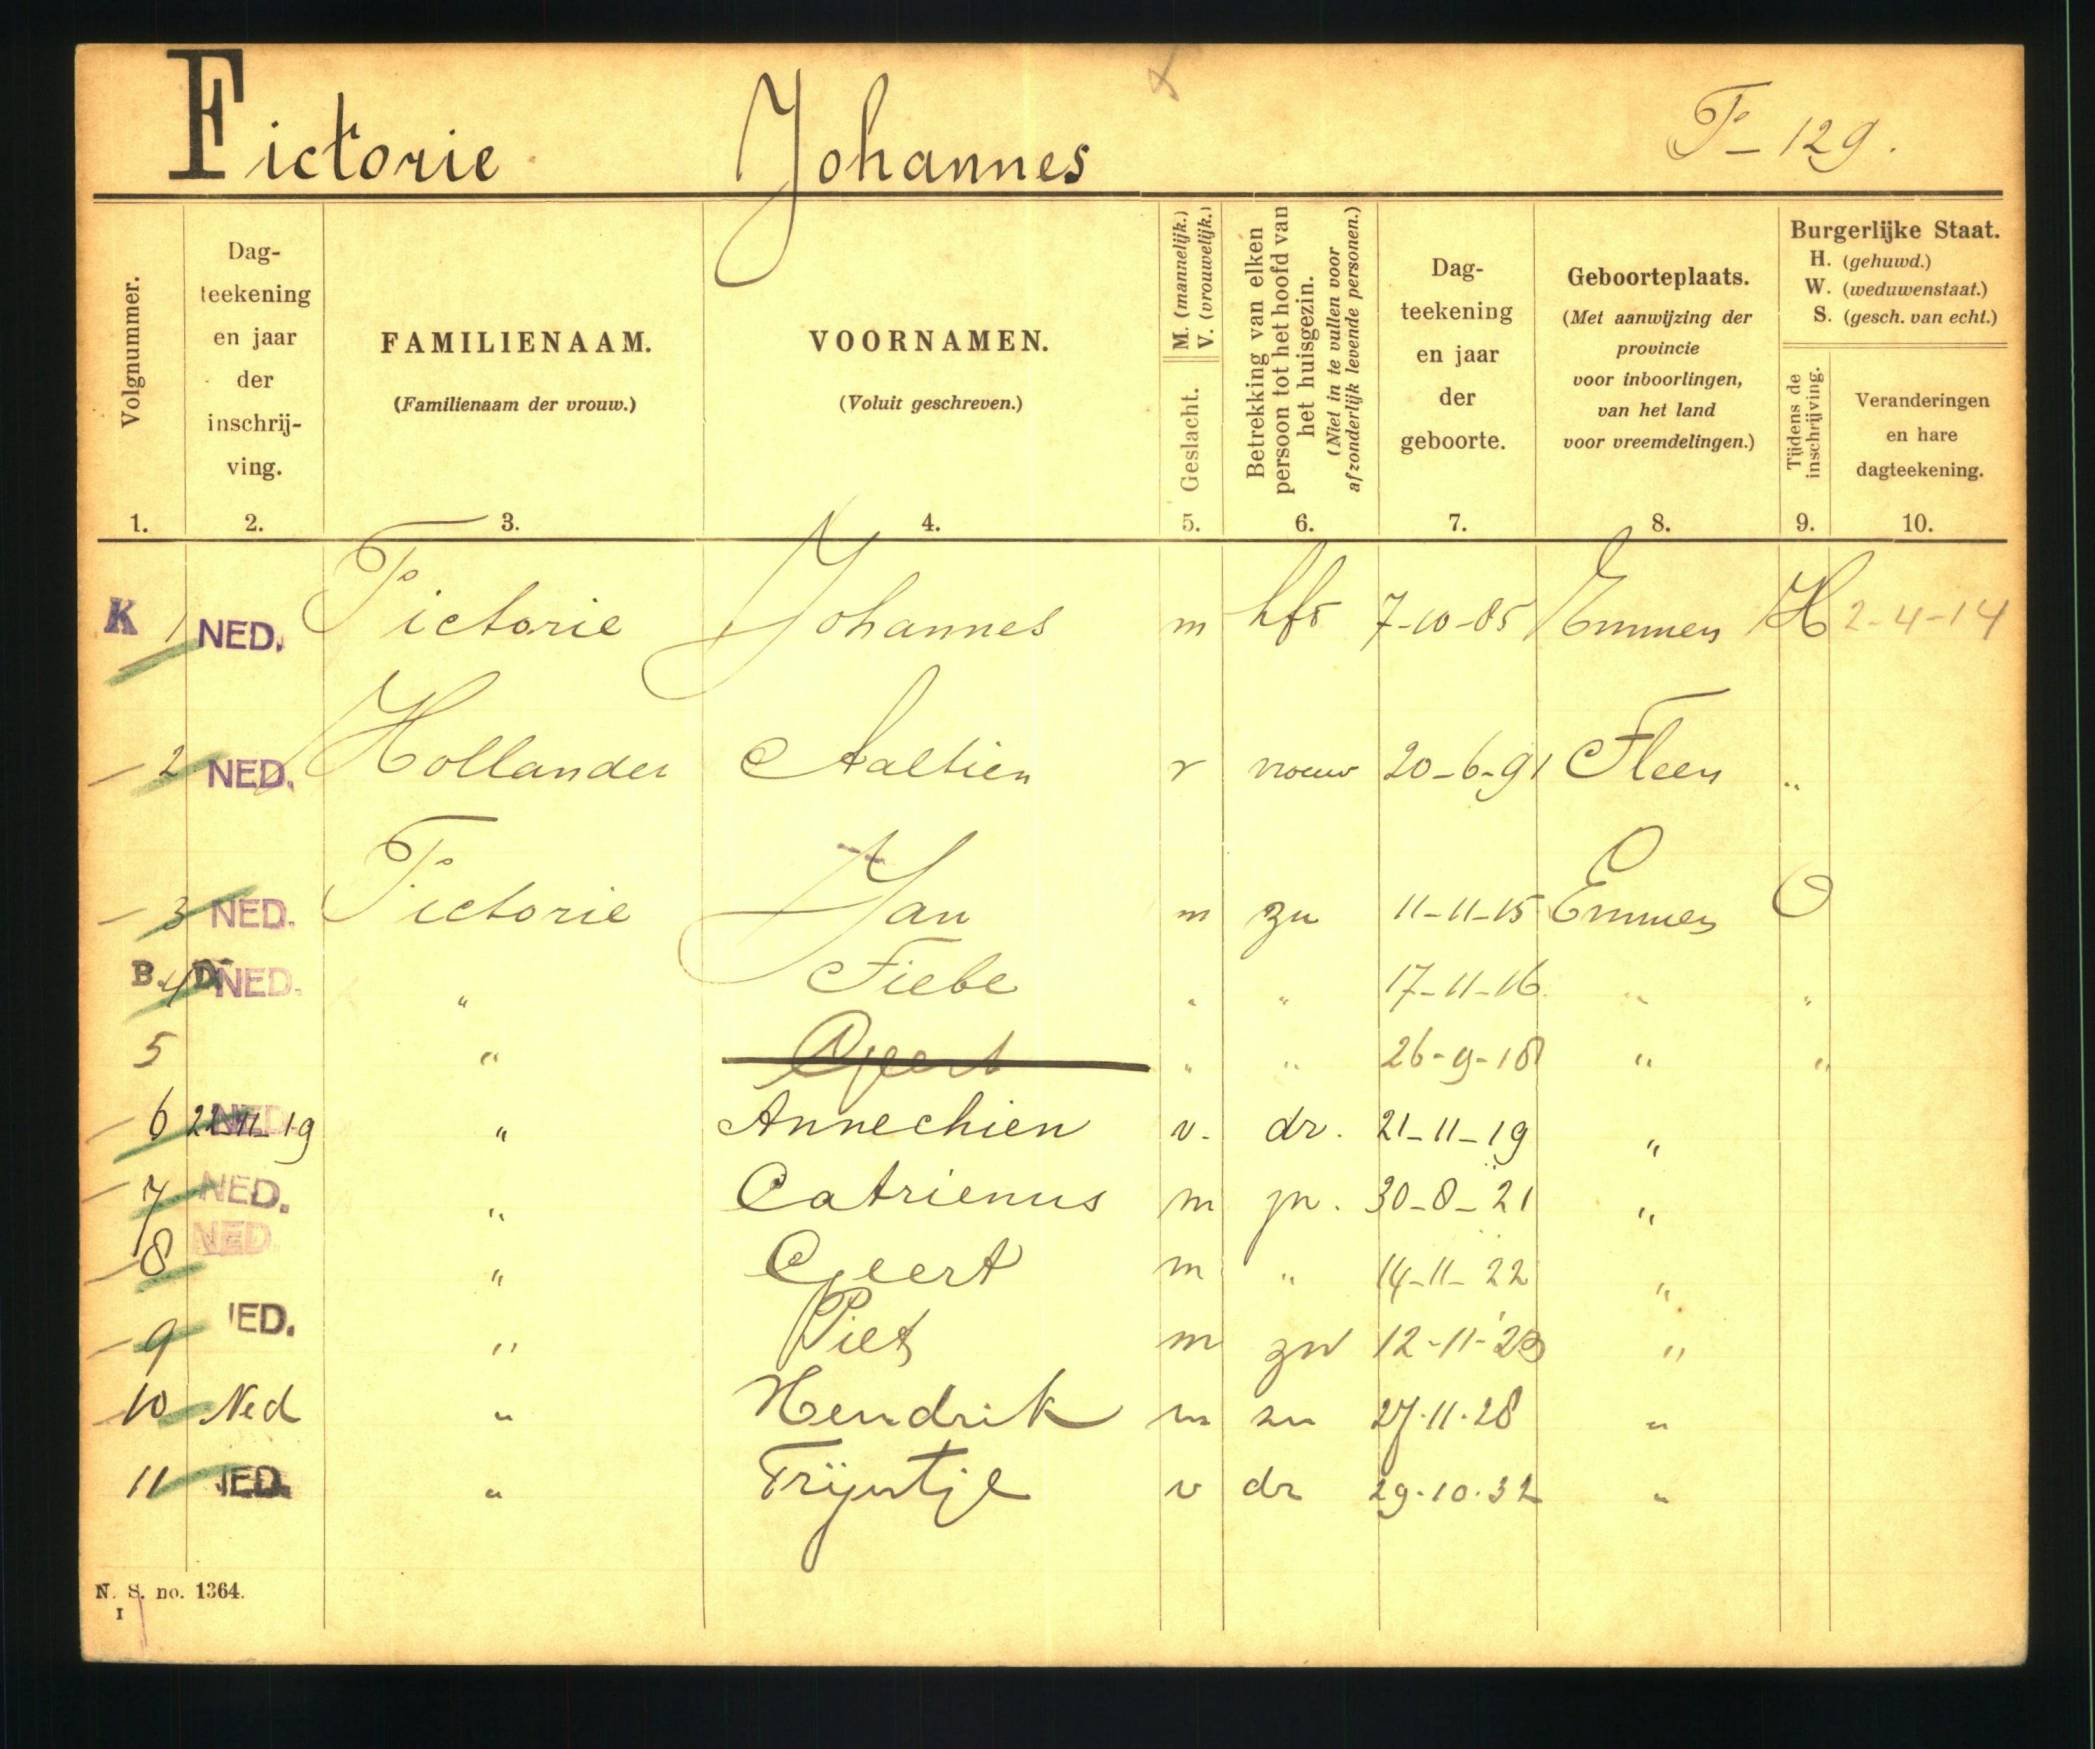 Fictorie Johannes F-129.
Volgnummer.
Dag-
teekening
en jaar
der
inschrij-
ving.
FAMILIENAAM.
(Familienaam der vrouw.)
VOORNAMEN.
(Voluit geschreven.)
M. (mannelijk.)
V. (vrouwelijk.)
Geslacht.
Betrekking van elken
persoon tot het hoofd van
het huisgezin.
(Niet in te vullen voor
afzonderlijk levende personen.)
Dag-
teekening
en jaar
der
geboorte.
Geboorteplaats.
(Met aanwijzing der
provincie
voor inboorlingen,
van het land
voor vreemdelingen.)
Burgerlijke Staat.
H. (gehuwd.)
W. (weduwenstaat.)
S. (gesch. van echt.)
Tijdens de
inschrijving.
Veranderingen
en hare
dagteekening.
1. 2. 3. 4. 5. 6. 7. 8. 9. 10.
K 1 NED. Fictorie Johannes m hfd 7-10-85 Emmen H 2-4-14
2 NED. Hollander Aaltien v vrouw 20-6-91 Sleen "
3 NED. Fictorie Jan m zn 11-11-15 Emmen O
B. 4 D NED. " Siebe " " 17-11-16 " "
5 " Geert " " 26-9-18 " "
6 NED. 22-11-19 " Annechien v. dr. 21-11-19 "
7 NED. " Catrienus m zn. 30-8-21 "
8 NED. " Geert m " 14-11-22 "
9 NED. " Piet m zn 12-11-'23 "
10 Ned " Hendrik m zn 27.11.28 "
11 NED. " Trijntje v dr 29.10.32 "
N. S. no. 1364.
I